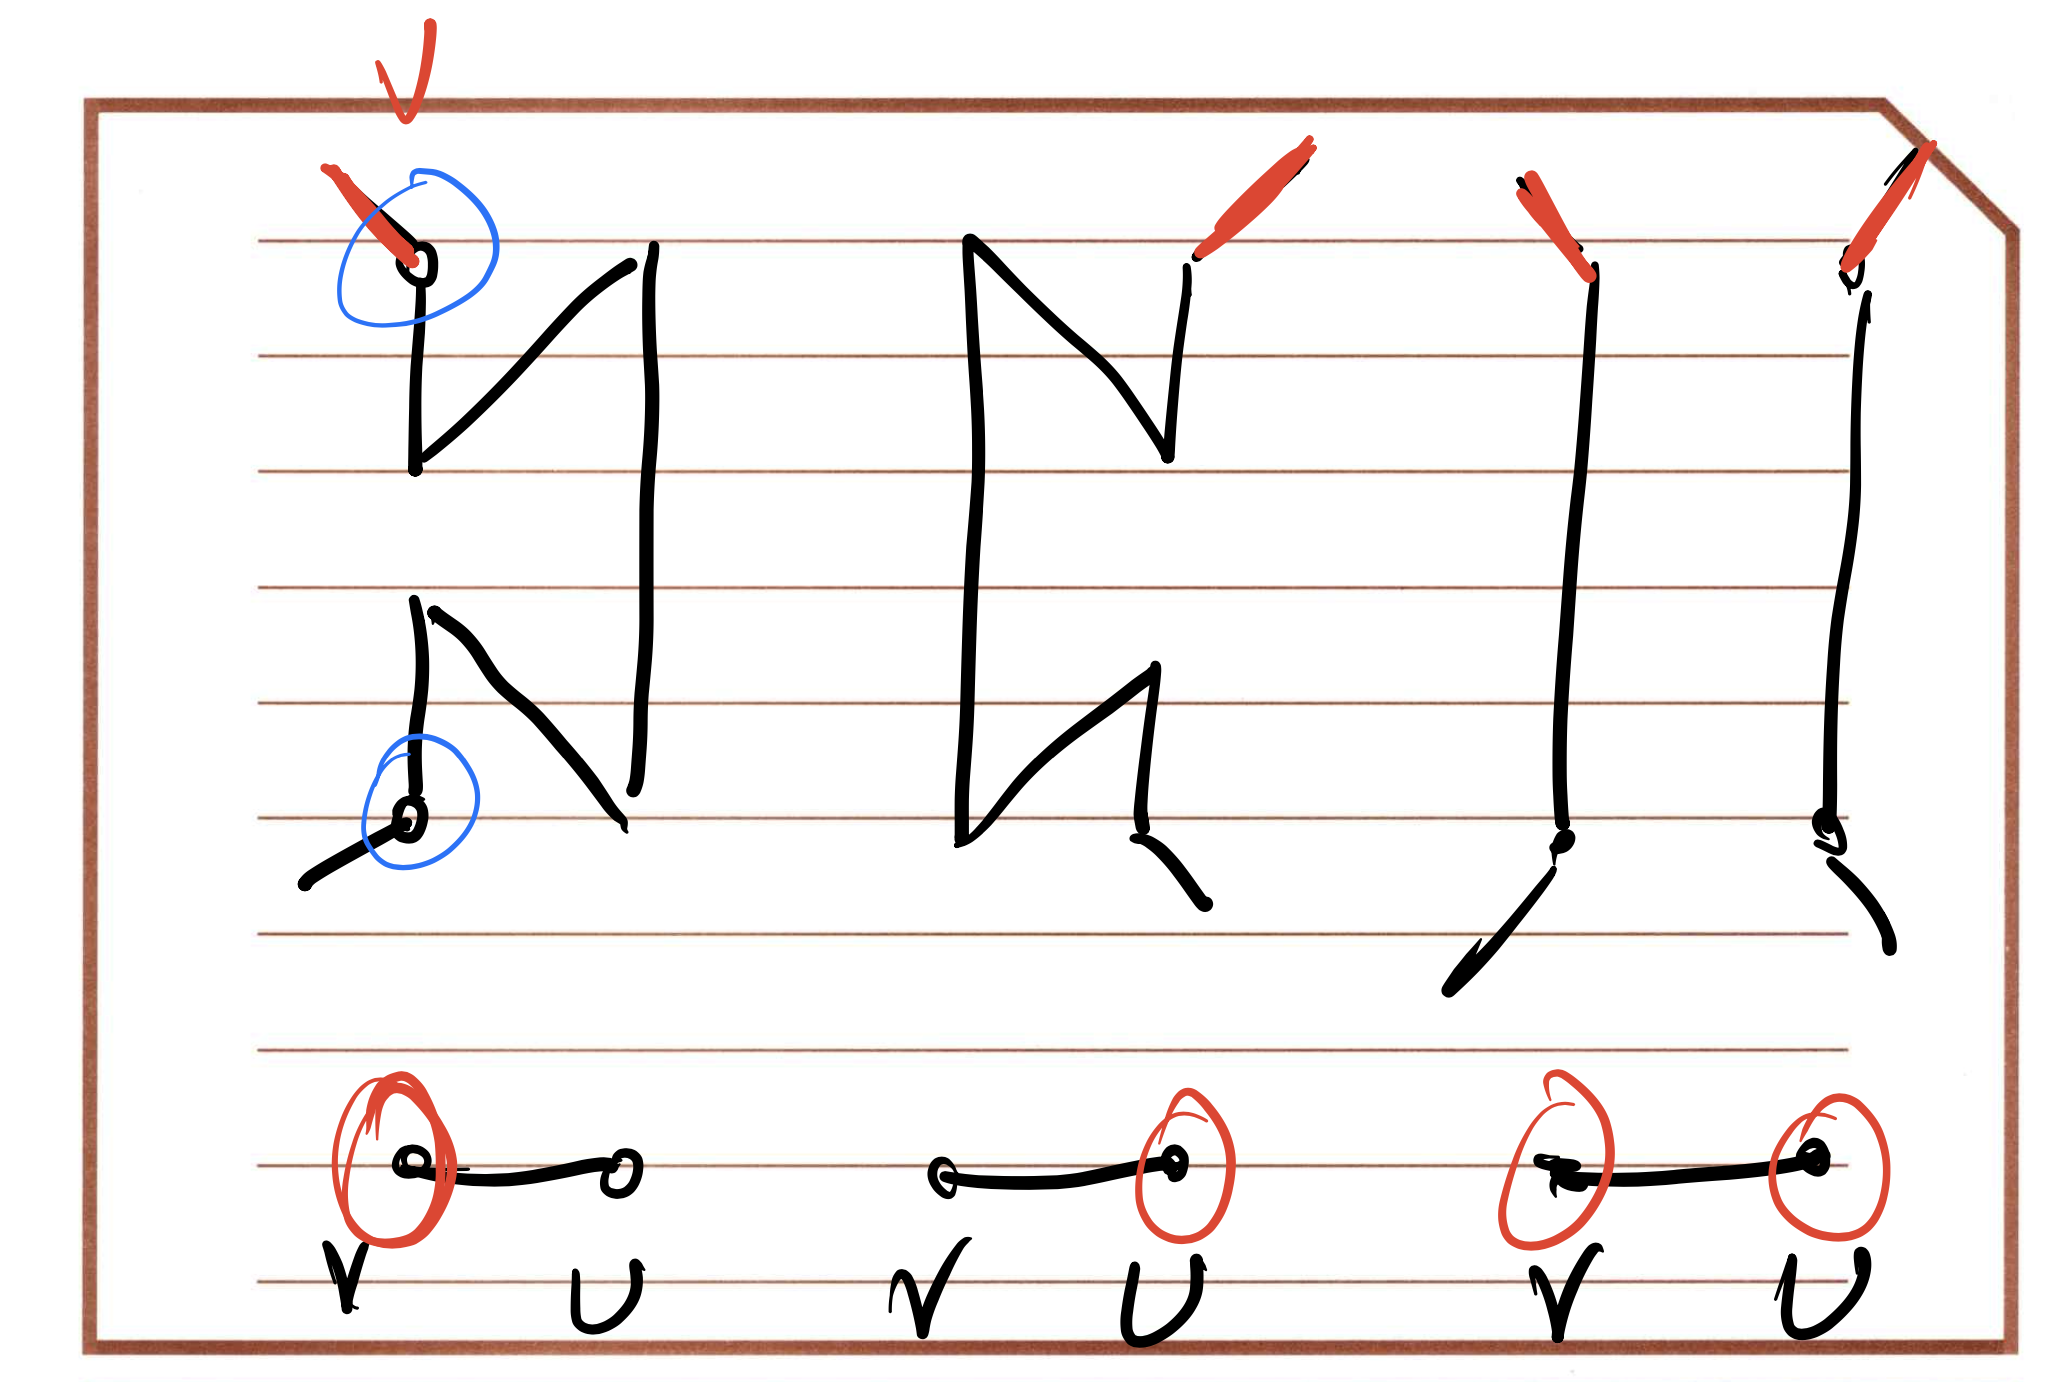 V U V U V U